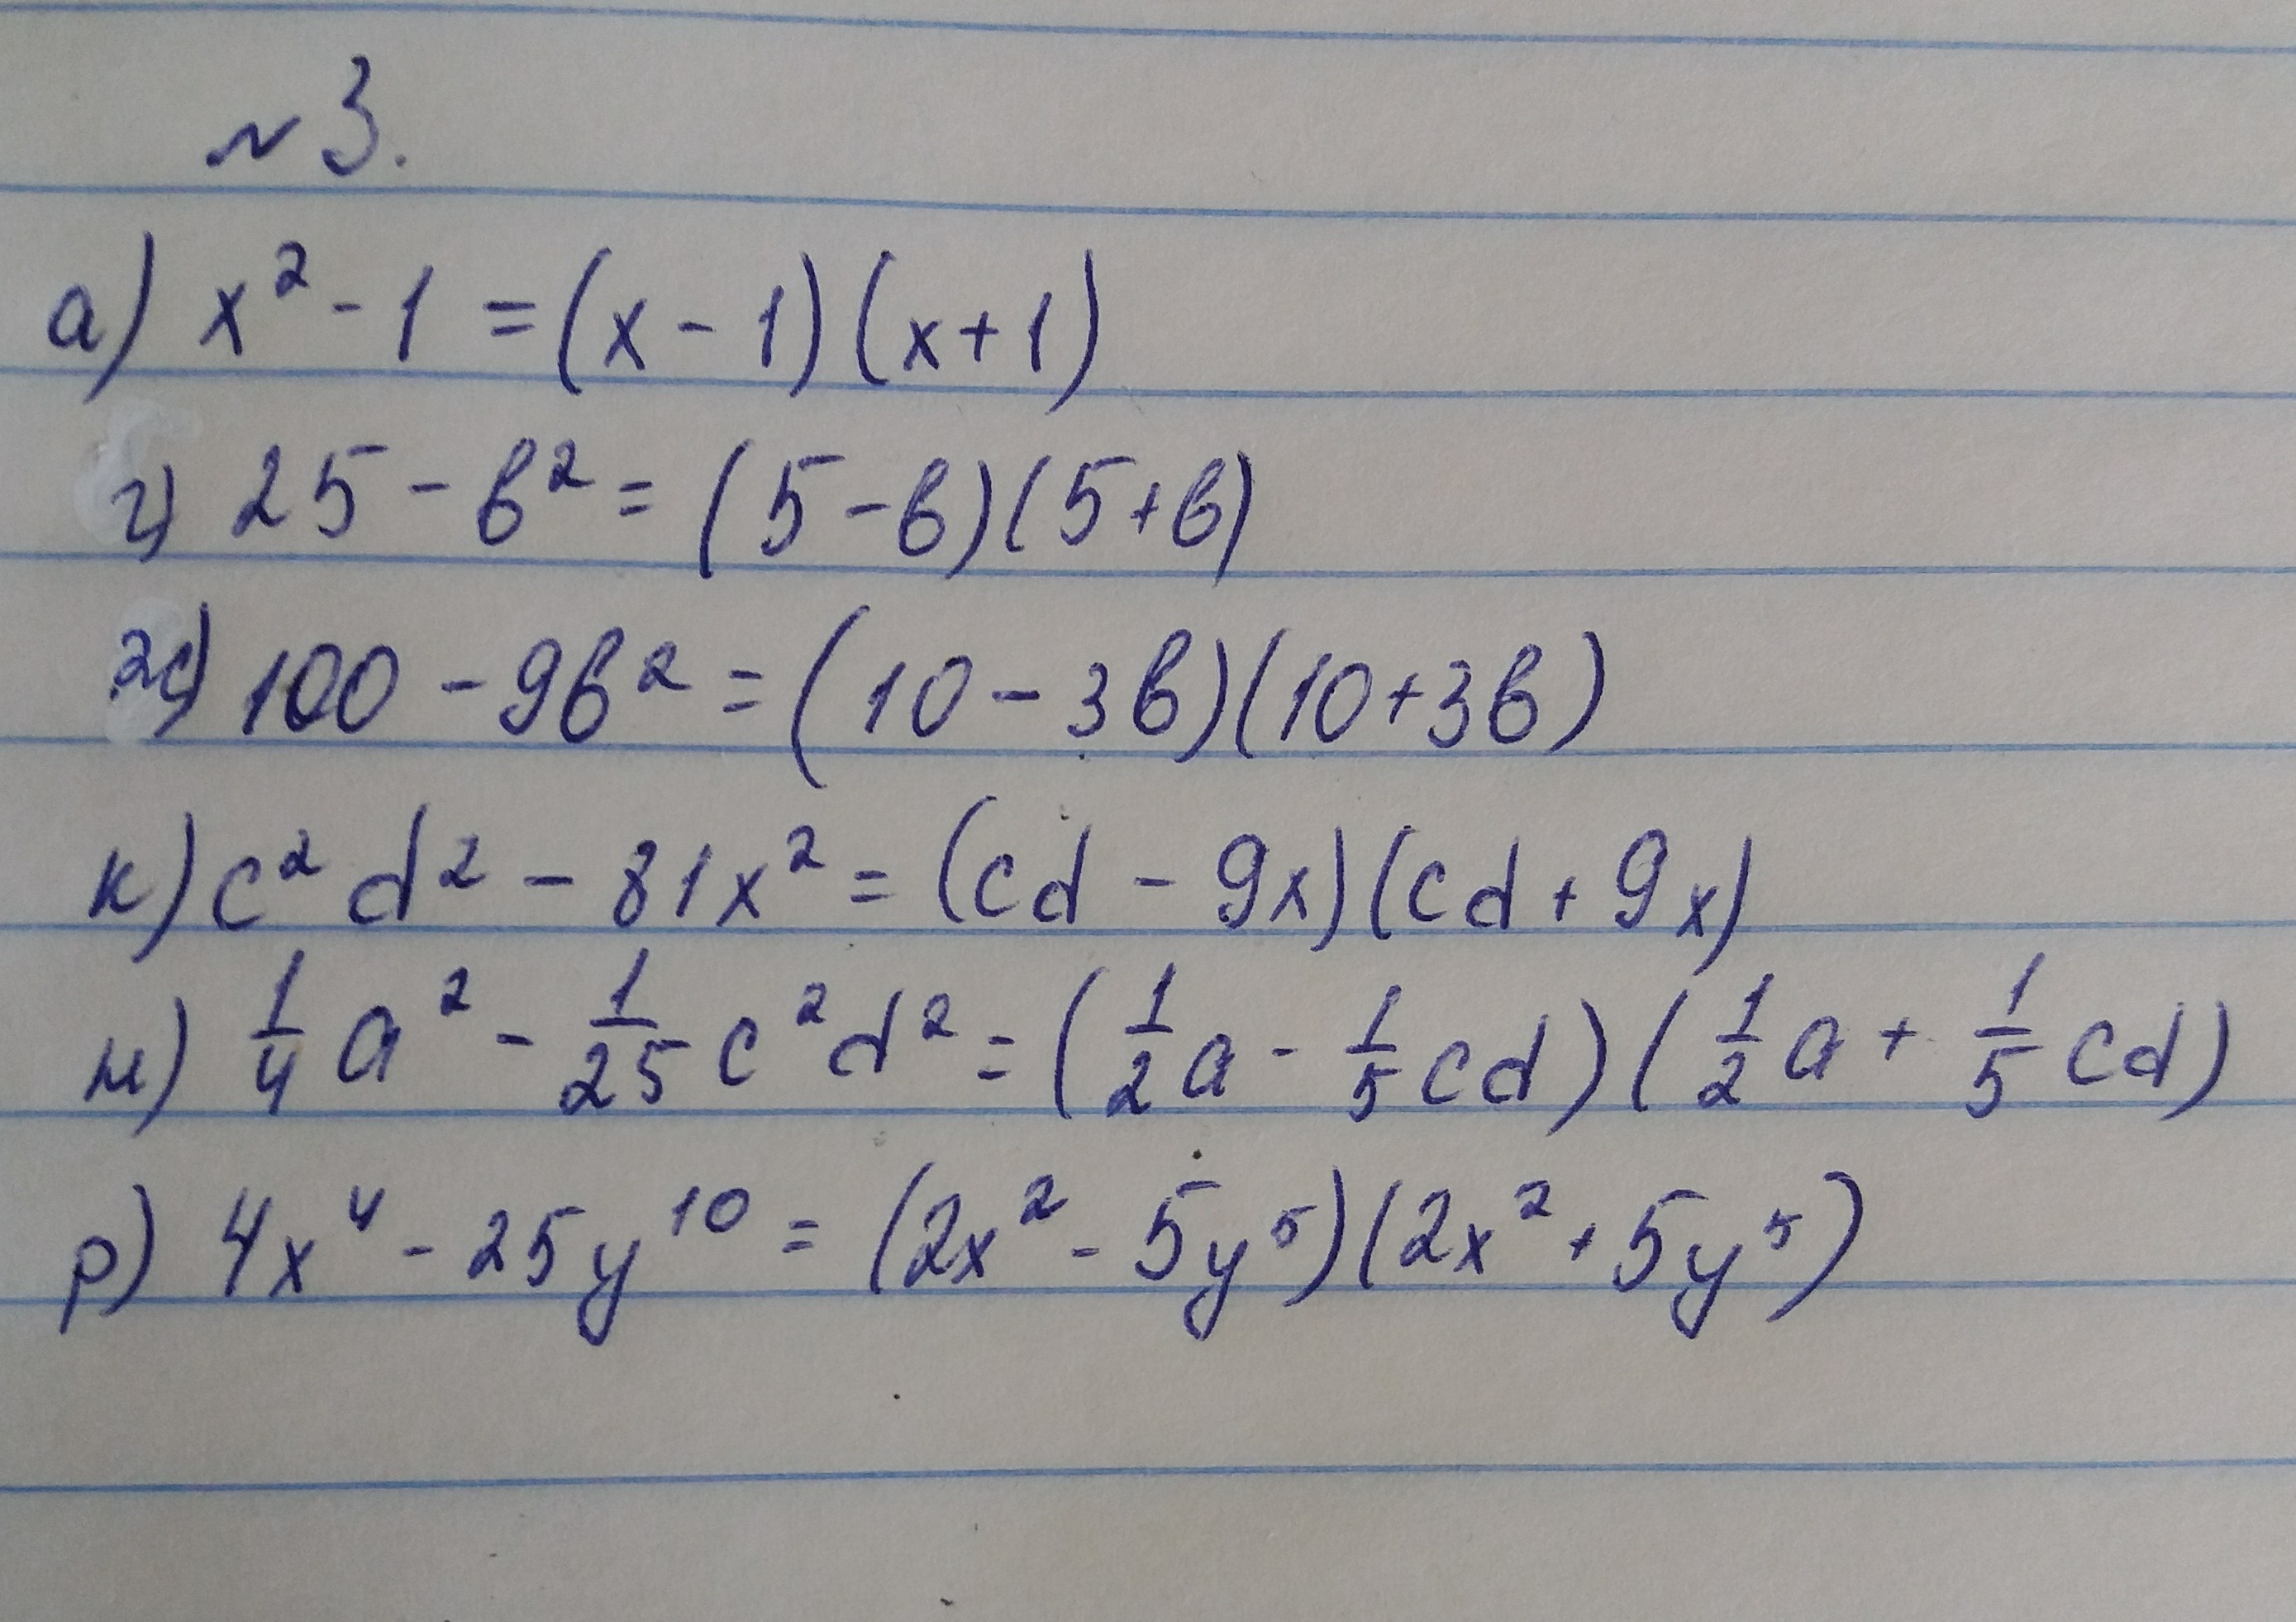 №3.
а) x² - 1 = (x - 1)(x + 1)
г) 25 - b² = (5 - b)(5 + b)
ж) 100 - 9b² = (10 - 3b)(10 + 3b)
к) c² d² - 81x² = (cd - 9x)(cd + 9x)
н) 1/4 a² - 1/25 c² d² = (1/2 a - 1/5 cd)(1/2 a + 1/5 cd)
р) 4x⁴ - 25y¹⁰ = (2x² - 5y⁵)(2x² + 5y⁵)